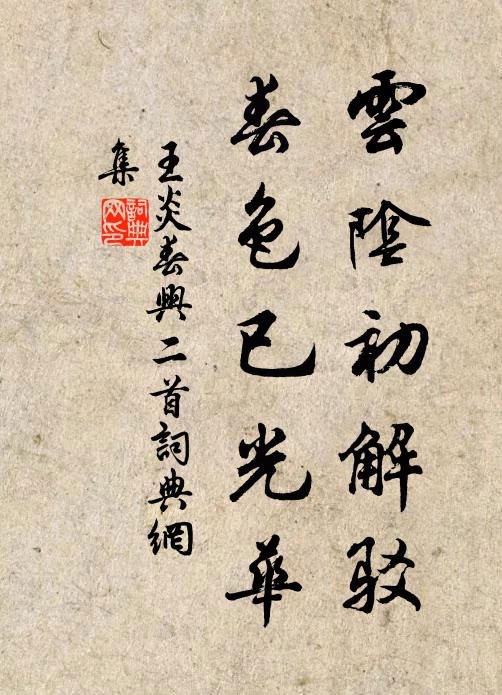 雲陰初解駁
春色已光華
王炎春興二首詞典網
集
詞典
网印